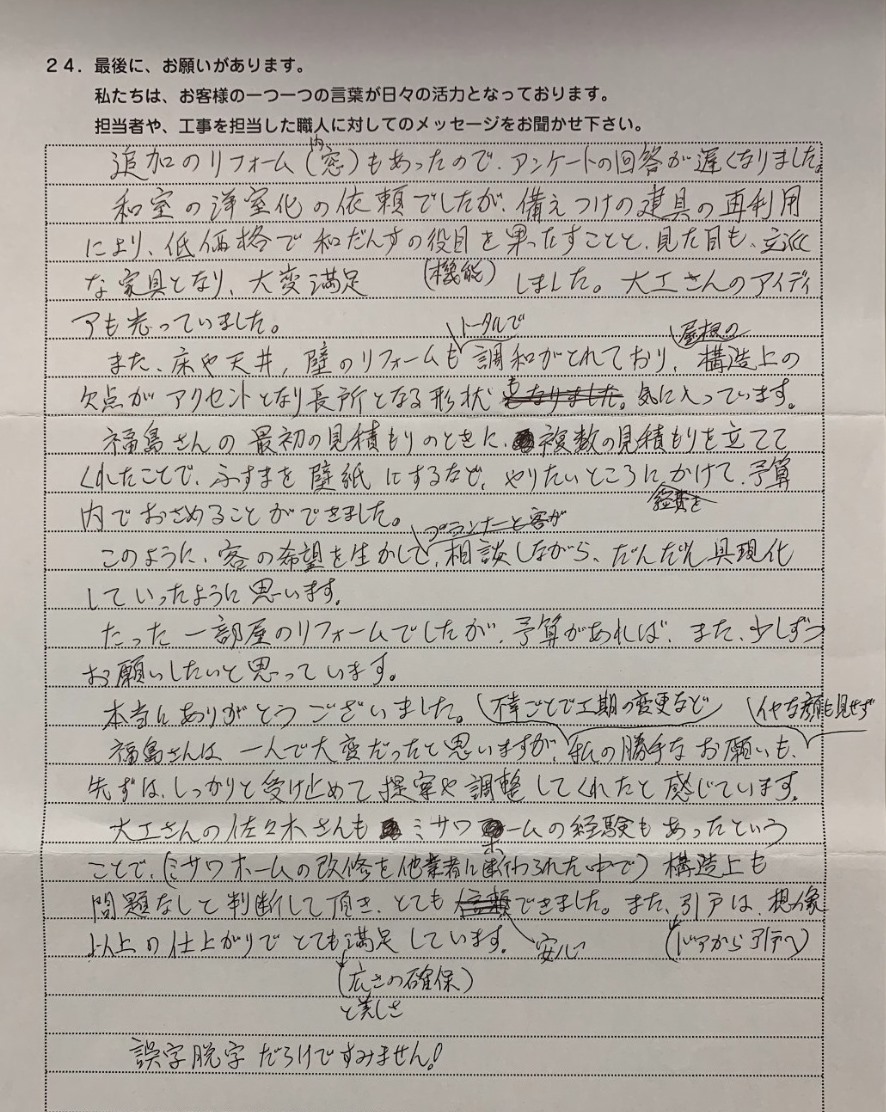 24．最後に、お願いがあります。
私たちは、お客様の一つ一つの言葉が日々の活力となっております。
担当者や、工事を担当した職人に対してのメッセージをお聞かせ下さい。
追加のリフォーム（内窓）もあったので、アンケートの回答が遅くなりました。
和室の洋室化の依頼でしたが、備えつけの建具の再利用
により、低価格で和だんすの役目を果たすことと、見た目も、立派
な家具となり、大変満足（機能）しました。大工さんのアイディ
アも光っていました。
トータルで　屋根の
また、床や天井，壁のリフォームも調和がとれており、構造上の
欠点がアクセントとなり長所となる形状となりました。気に入っています。
福島さんの最初の見積もりのときに、複数の見積もりを立てて
くれたことで、ふすまを壁紙にするなど、やりたいところにかけて、予算
経費を
内でおさめることができました。
プランナーと客が
このように、客の希望を生かして、相談しながら、だんだん具現化
していったように思います。
たった一部屋のリフォームでしたが、予算があれば、また、少しずつ
お願いしたいと思っています。
本当にありがとうございました。
不幸ごとで工期の変更など　イヤな顔も見せず
福島さんは、一人で大変だったと思いますが、私の勝手なお願いも、
先ずは、しっかりと受け止めて提案や調整してくれたと感じています。
大工さんの佐々木さんもミサワホームの経験もあったという
ことで、（ミサワホームの改修を他業者に断わられた中で）構造上も
問題なしと判断して頂き、とても信頼できました。また、引戸は、想像
以上の仕上がりでとても満足しています。
安心　（ドアから引戸へ）
（広さの確保）
と美しさ
誤字脱字だらけですみません！